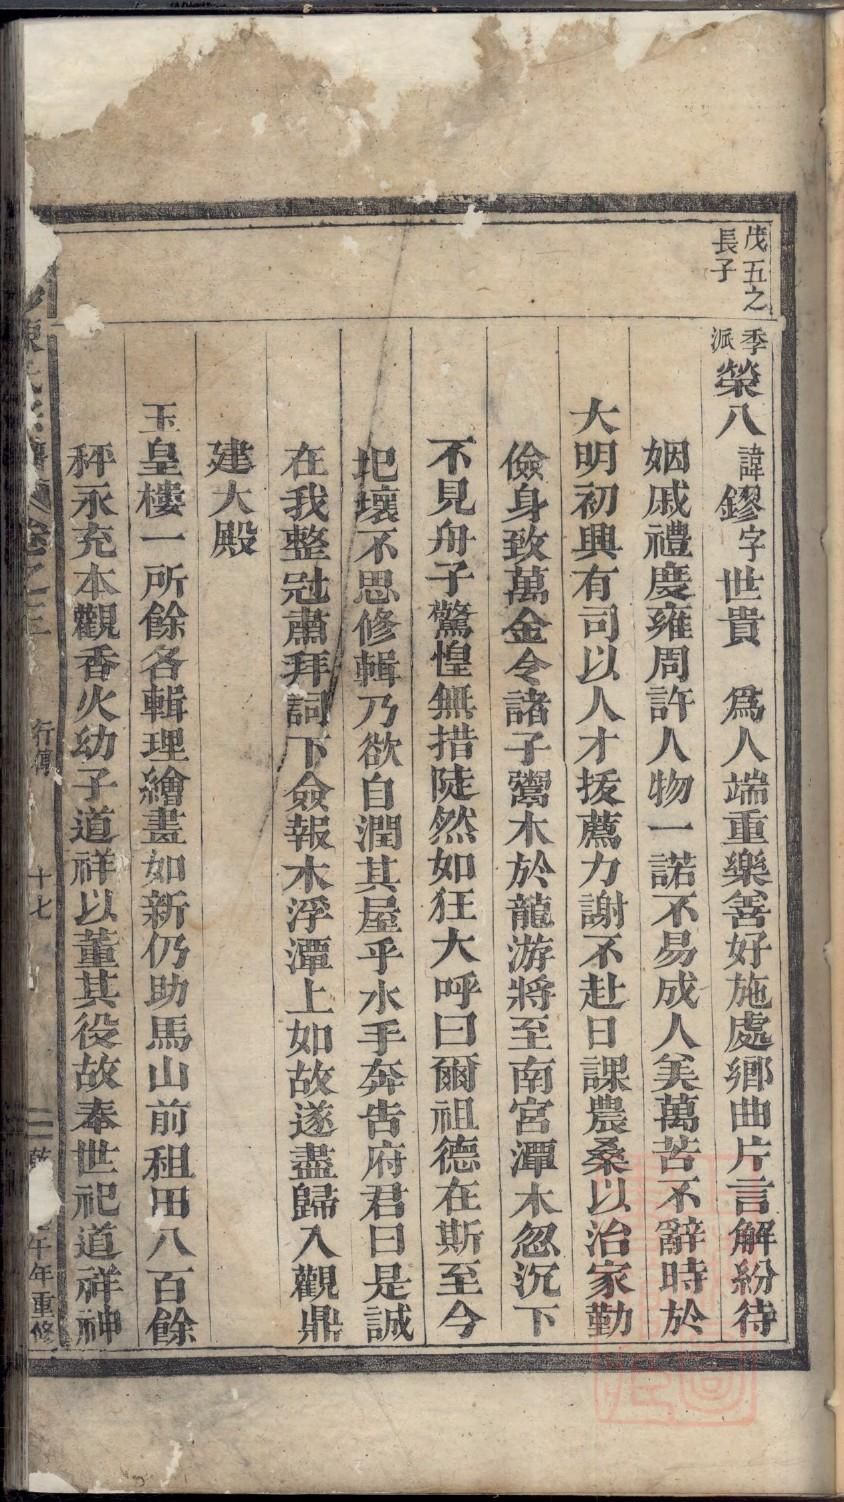 戊五之
長子
季派榮八諱鏐字世貴　為人端重樂善好施處鄉曲片言解紛待
姻戚禮慶雍周許人物一諾不易成人美萬苦不辭時於
大明初興有司以人才拔薦力謝不赴日課農桑以治家勤
儉身致萬金令諸子鬻木於龍游將至南宮潭木忽沉下
不見舟子驚惶無措陡然如狂大呼曰爾祖德在斯至今
圯壞不思修輯乃欲自潤其屋乎水手奔告府君曰是誠
在我整冠肅拜詞下僉報木浮潭上如故遂盡歸入觀鼎
建大殿
玉皇樓一所餘各輯理繪畫如新仍助馬山前租田八百餘
秤永充本觀香火幼子道祥以董其役故奉世祀道祥神
陳氏宗譜卷之三　行傳　十七　乾　午年重修